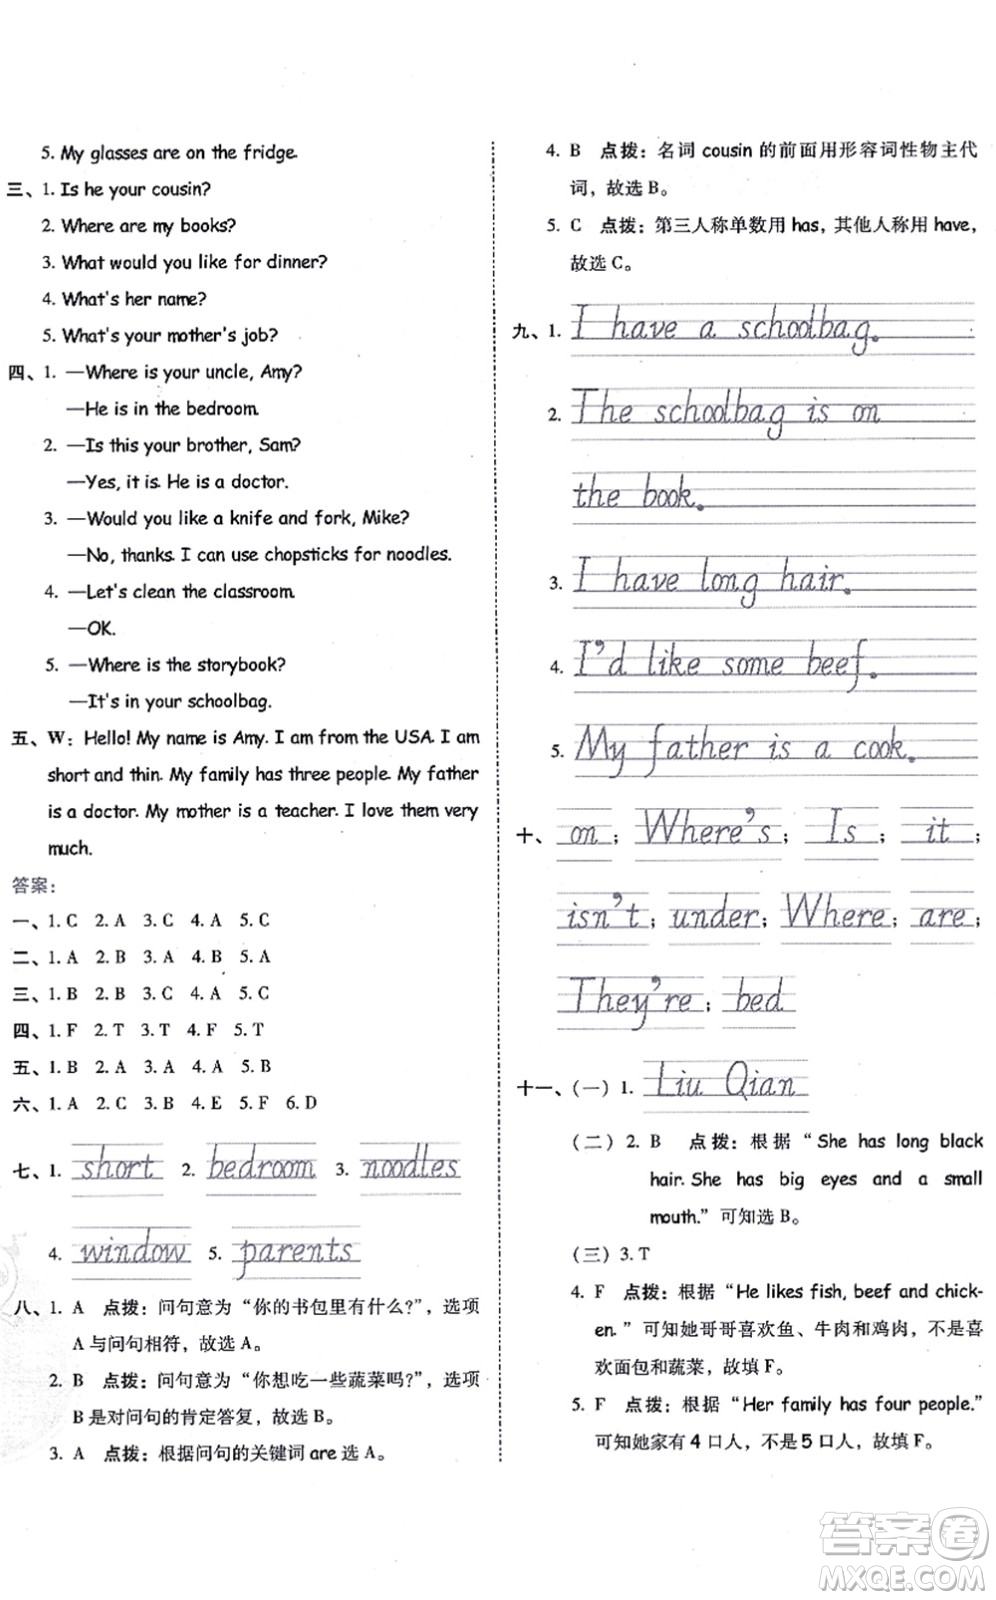 5. My glasses are on the fridge.
三、1. Is he your cousin?
2. Where are my books?
3. What would you like for dinner?
4. What's her name?
5. What's your mother's job?
四、1. —Where is your uncle, Amy?
—He is in the bedroom.
2. —Is this your brother, Sam?
—Yes, it is. He is a doctor.
3. —Would you like a knife and fork, Mike?
—No, thanks. I can use chopsticks for noodles.
4. —Let's clean the classroom.
—OK.
5. —Where is the storybook?
—It's in your schoolbag.
五、W: Hello! My name is Amy. I am from the USA. I am
short and thin. My family has three people. My father
is a doctor. My mother is a teacher. I love them very
much.
答案:
一、1. C 2. A 3. C 4. A 5. C
二、1. A 2. B 3. A 4. B 5. A
三、1. B 2. B 3. C 4. A 5. C
四、1. F 2. T 3. T 4. F 5. T
五、1. B 2. A 3. A 4. A 5. B
六、1. A 2. C 3. B 4. E 5. F 6. D
七、1. short 2. bedroom 3. noodles
4. window 5. parents
八、1. A 点拨：问句意为“你的书包里有什么?”，选项
A与问句相符，故选A。
2. B 点拨：问句意为“你想吃一些蔬菜吗?”，选项
B是对问句的肯定答复，故选B。
3. A 点拨：根据问句的关键词 are 选 A。
4. B 点拨：名词 cousin 的前面用形容词性物主代
词，故选B。
5. C 点拨：第三人称单数用 has，其他人称用 have，
故选C。
九、1. I have a schoolbag.
2. The schoolbag is on
the book.
3. I have long hair.
4. I'd like some beef.
5. My father is a cook.
十、on; Where's; Is; it;
isn't; under; Where; are;
They're; bed
十一、(一) 1. Liu Qian
(二) 2. B 点拨：根据“She has long black
hair. She has big eyes and a small
mouth.”可知选B。
(三) 3. T
4. F 点拨：根据“He likes fish, beef and chick-
en.”可知她哥哥喜欢鱼、牛肉和鸡肉，不是喜
欢面包和蔬菜，故填F。
5. F 点拨：根据“Her family has four people.”
可知她家有4口人，不是5口人，故填F。
答案圈
MXQE.COM